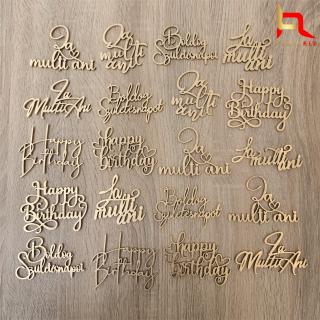 La
multi ani
La
multi
ani
Boldog
születésnapot
La
multi
ani
La
Multi Ani
Boldog
születésnapot
La
multi
ani
Happy
Birthday
Happy
Birthday
Happy
Birthday
La
multi ani
La
multi
ani
Happy
Birthday
La
multi
ani
Boldog
születésnapot
La
multi ani
Boldog
születésnapot
Happy
Birthday
Happy
Birthday
La
Multi Ani